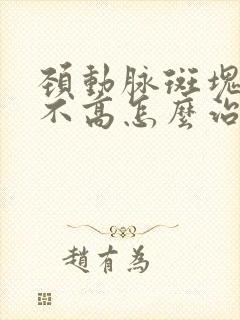 頚動脉斑塊
不高怎麼治
趙有為